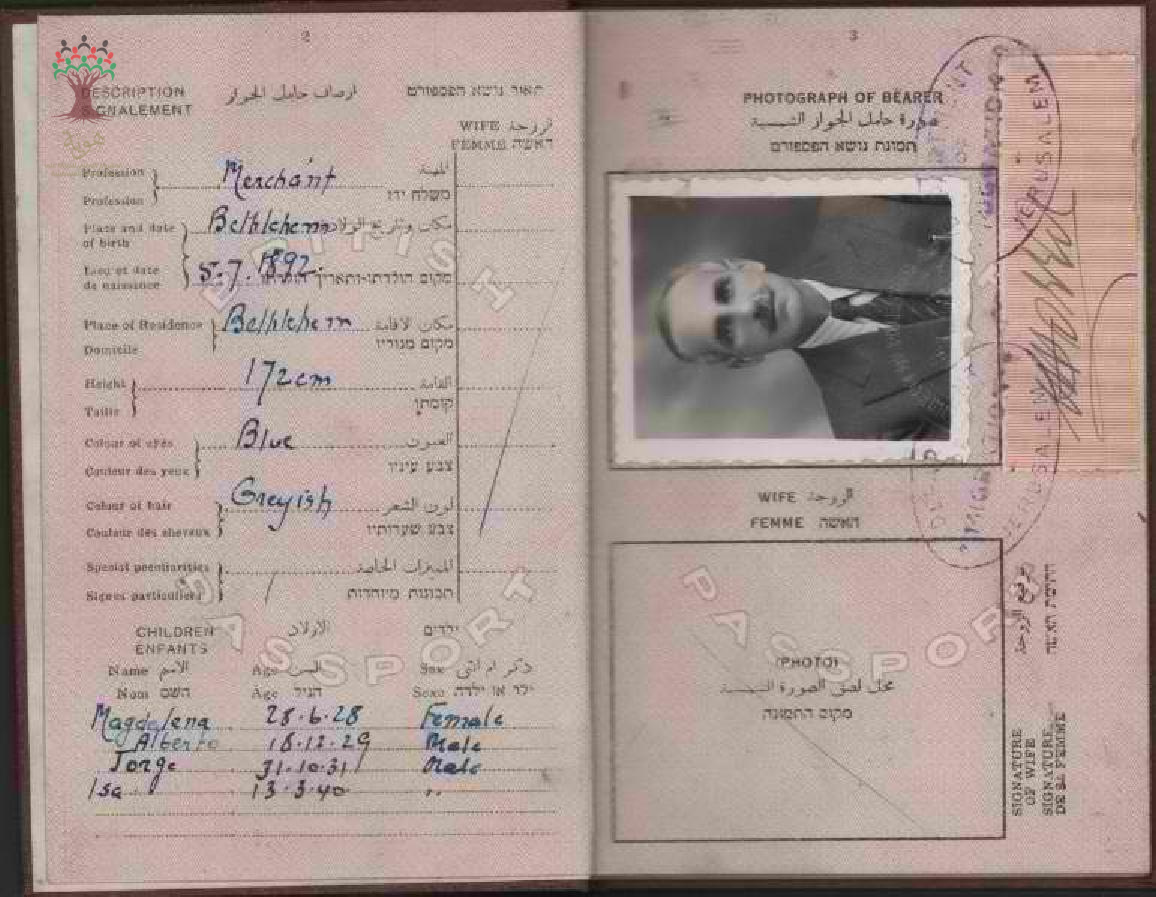 2
DESCRIPTION اوصاف حامل الجواز תאור נושא הפספורט
SIGNALEMENT
WIFE الزوجة
FEMME האשה
Profession Merchant المهنة
Profession משלח ידו
Place and date of birth Bethlehem مكان وتاريخ الولادة
Lieu et date de naissance 5.7.1892 מקום הולדתו ותאריך הולדתו
Place of Residence Bethlehem مكان الاقامة
Domicile מקום מגוריו
Height 172 cm القامة
Taille קומתו
Colour of eyes Blue العيون
Couleur des yeux צבע עיניו
Colour of hair Greyish لون الشعر
Couleur des cheveux צבע שערותיו
Special peculiarities المميزات الخاصة
Signes particuliers תכונות מיוחדות
CHILDREN الاولاد ילדים
ENFANTS
Name الاسم Age السن Sex ذكر ام انثى
Nom השם Age הגיל Sexe ילד או ילדה
Magdalena 28.6.28 Female
Alberto 18.12.29 Male
Jorge 31.10.31 Male
Isa 13.3.40 "
BRITISH
PASSPORT
3
PHOTOGRAPH OF BEARER
صورة حامل الجواز الشمسية
תמונת נושא הפספורט
JERUSALEM
WIFE الزوجة
FEMME האשה
PASSPORT
(PHOTO)
محل لصق الصورة الشمسية
מקום התמונה
JERUSALEM
توقيع الزوجة
חתימת האשה
SIGNATURE OF WIFE
SIGNATURE DE SA FEMME